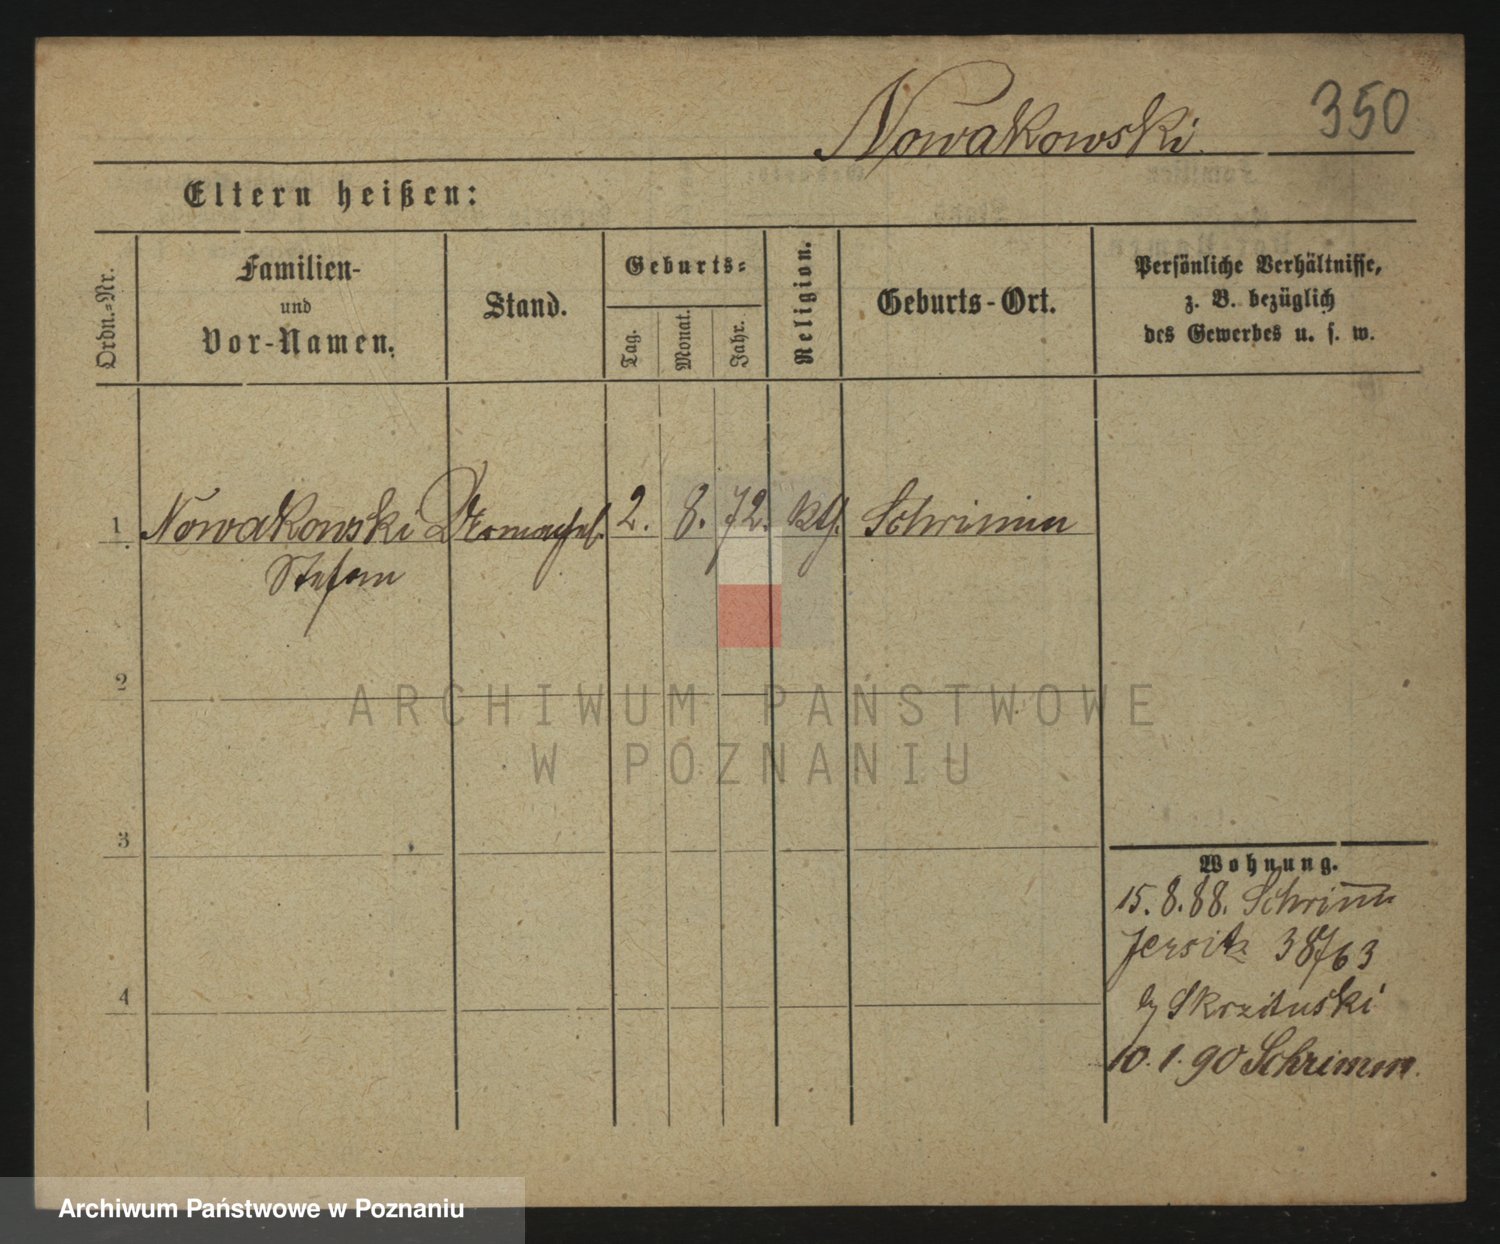 Nowakowski
350
Eltern heißen:
Ordn.-Nr.
Familien-
und
Vor-Namen.
Stand.
Geburts-
Tag.
Monat.
Jahr.
Religion.
Geburts-Ort.
Persönliche Verhältnisse,
z. B. bezüglich
des Gewerbes u. s. w.
1 Nowakowski 2. 8. 72. kth. Schrimm
Stefan
2
ARCHIWUM PAŃSTWOWE
W POZNANIU
3
4
Wohnung.
15. 8. 88. Schrimm
Jersitz
Skrzituski
10. 1. 90 Schrimm.
Archiwum Państwowe w Poznaniu